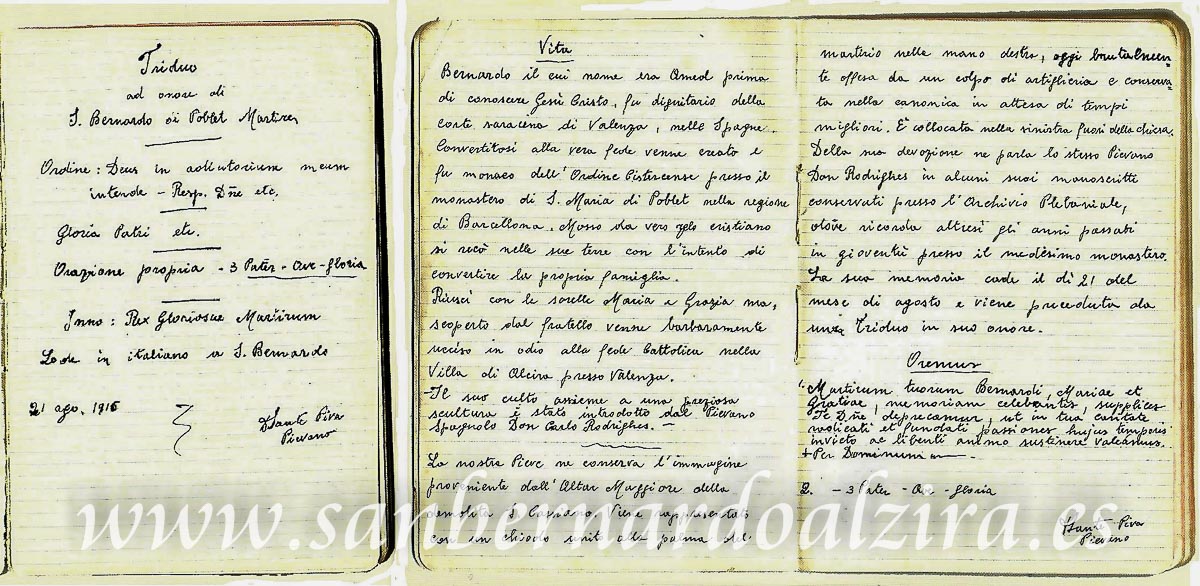 Triduo
ad onore di
S. Bernardo di Poblet Martire
Ordine: Deus in adiutorium meum
intende - Resp. Dñe etc.
Gloria Patri etc.
Orazione propria - 3 Pater - Ave - Gloria
Inno: Rex Gloriosae Martirum
Lode in italiano a S. Bernardo
21 ago. 1916
D Sante Piva
Pievano
Vita
Bernardo il cui nome era Amed prima
di conoscere Gesù Cristo, fu dignitario della
corte saracina di Valenza, nelle Spagne.
Convertitosi alla vera fede venne creato e
fu monaco dell'Ordine Cistercense presso il
monastero di S. Maria di Poblet nella regione
di Barcellona. Mosso da vero zelo cristiano
si recò nelle sue terre con l'intento di
convertire la propria famiglia.
Riuscì con le sorelle Maria e Grazia ma,
scoperto dal fratello venne barbaramente
ucciso in odio alla fede Cattolica nella
Villa di Alcira presso Valenza.
Il suo culto assieme a una preziosa
scultura è stato introdotto dal Pievano
Spagnolo Don Carlo Rodrighes. -
La nostra Pieve ne conserva l'immagine
proveniente dall'Altar Maggiore della
demolita S. Capriano. Viene rappresentato
con un chiodo unito alla palma del
martirio nella mano destra, oggi brutalmen-
te offesa da un colpo di artiglieria e conserva-
ta nella canonica in attesa di tempi
migliori. È collocata nella sinistra fuori della chiesa.
Della sua devozione ne parla lo stesso Pievano
Don Rodrighes in alcuni suoi manoscritti
conservati presso l'Archivio Plebaniale,
dove ricorda altresì gli anni passati
in gioventù presso il medesimo monastero.
La sua memoria cade il dì 21 del
mese di agosto e viene preceduta da
un Triduo in suo onore.
Oremus
1. Martirum tuorum Bernardi, Mariae et
Gratiae, memoriam celebrantes, supplices
Te Dñe deprecamur, ut in tua caritate
radicati et fundati passiones hujus temporis
invicto ac libenti animo sustinere valeamus.
+ Per Dominum
2. - 3 Pater - Ave - Gloria
D Sante Piva
Pievano
www.sanbernardoalzira.es